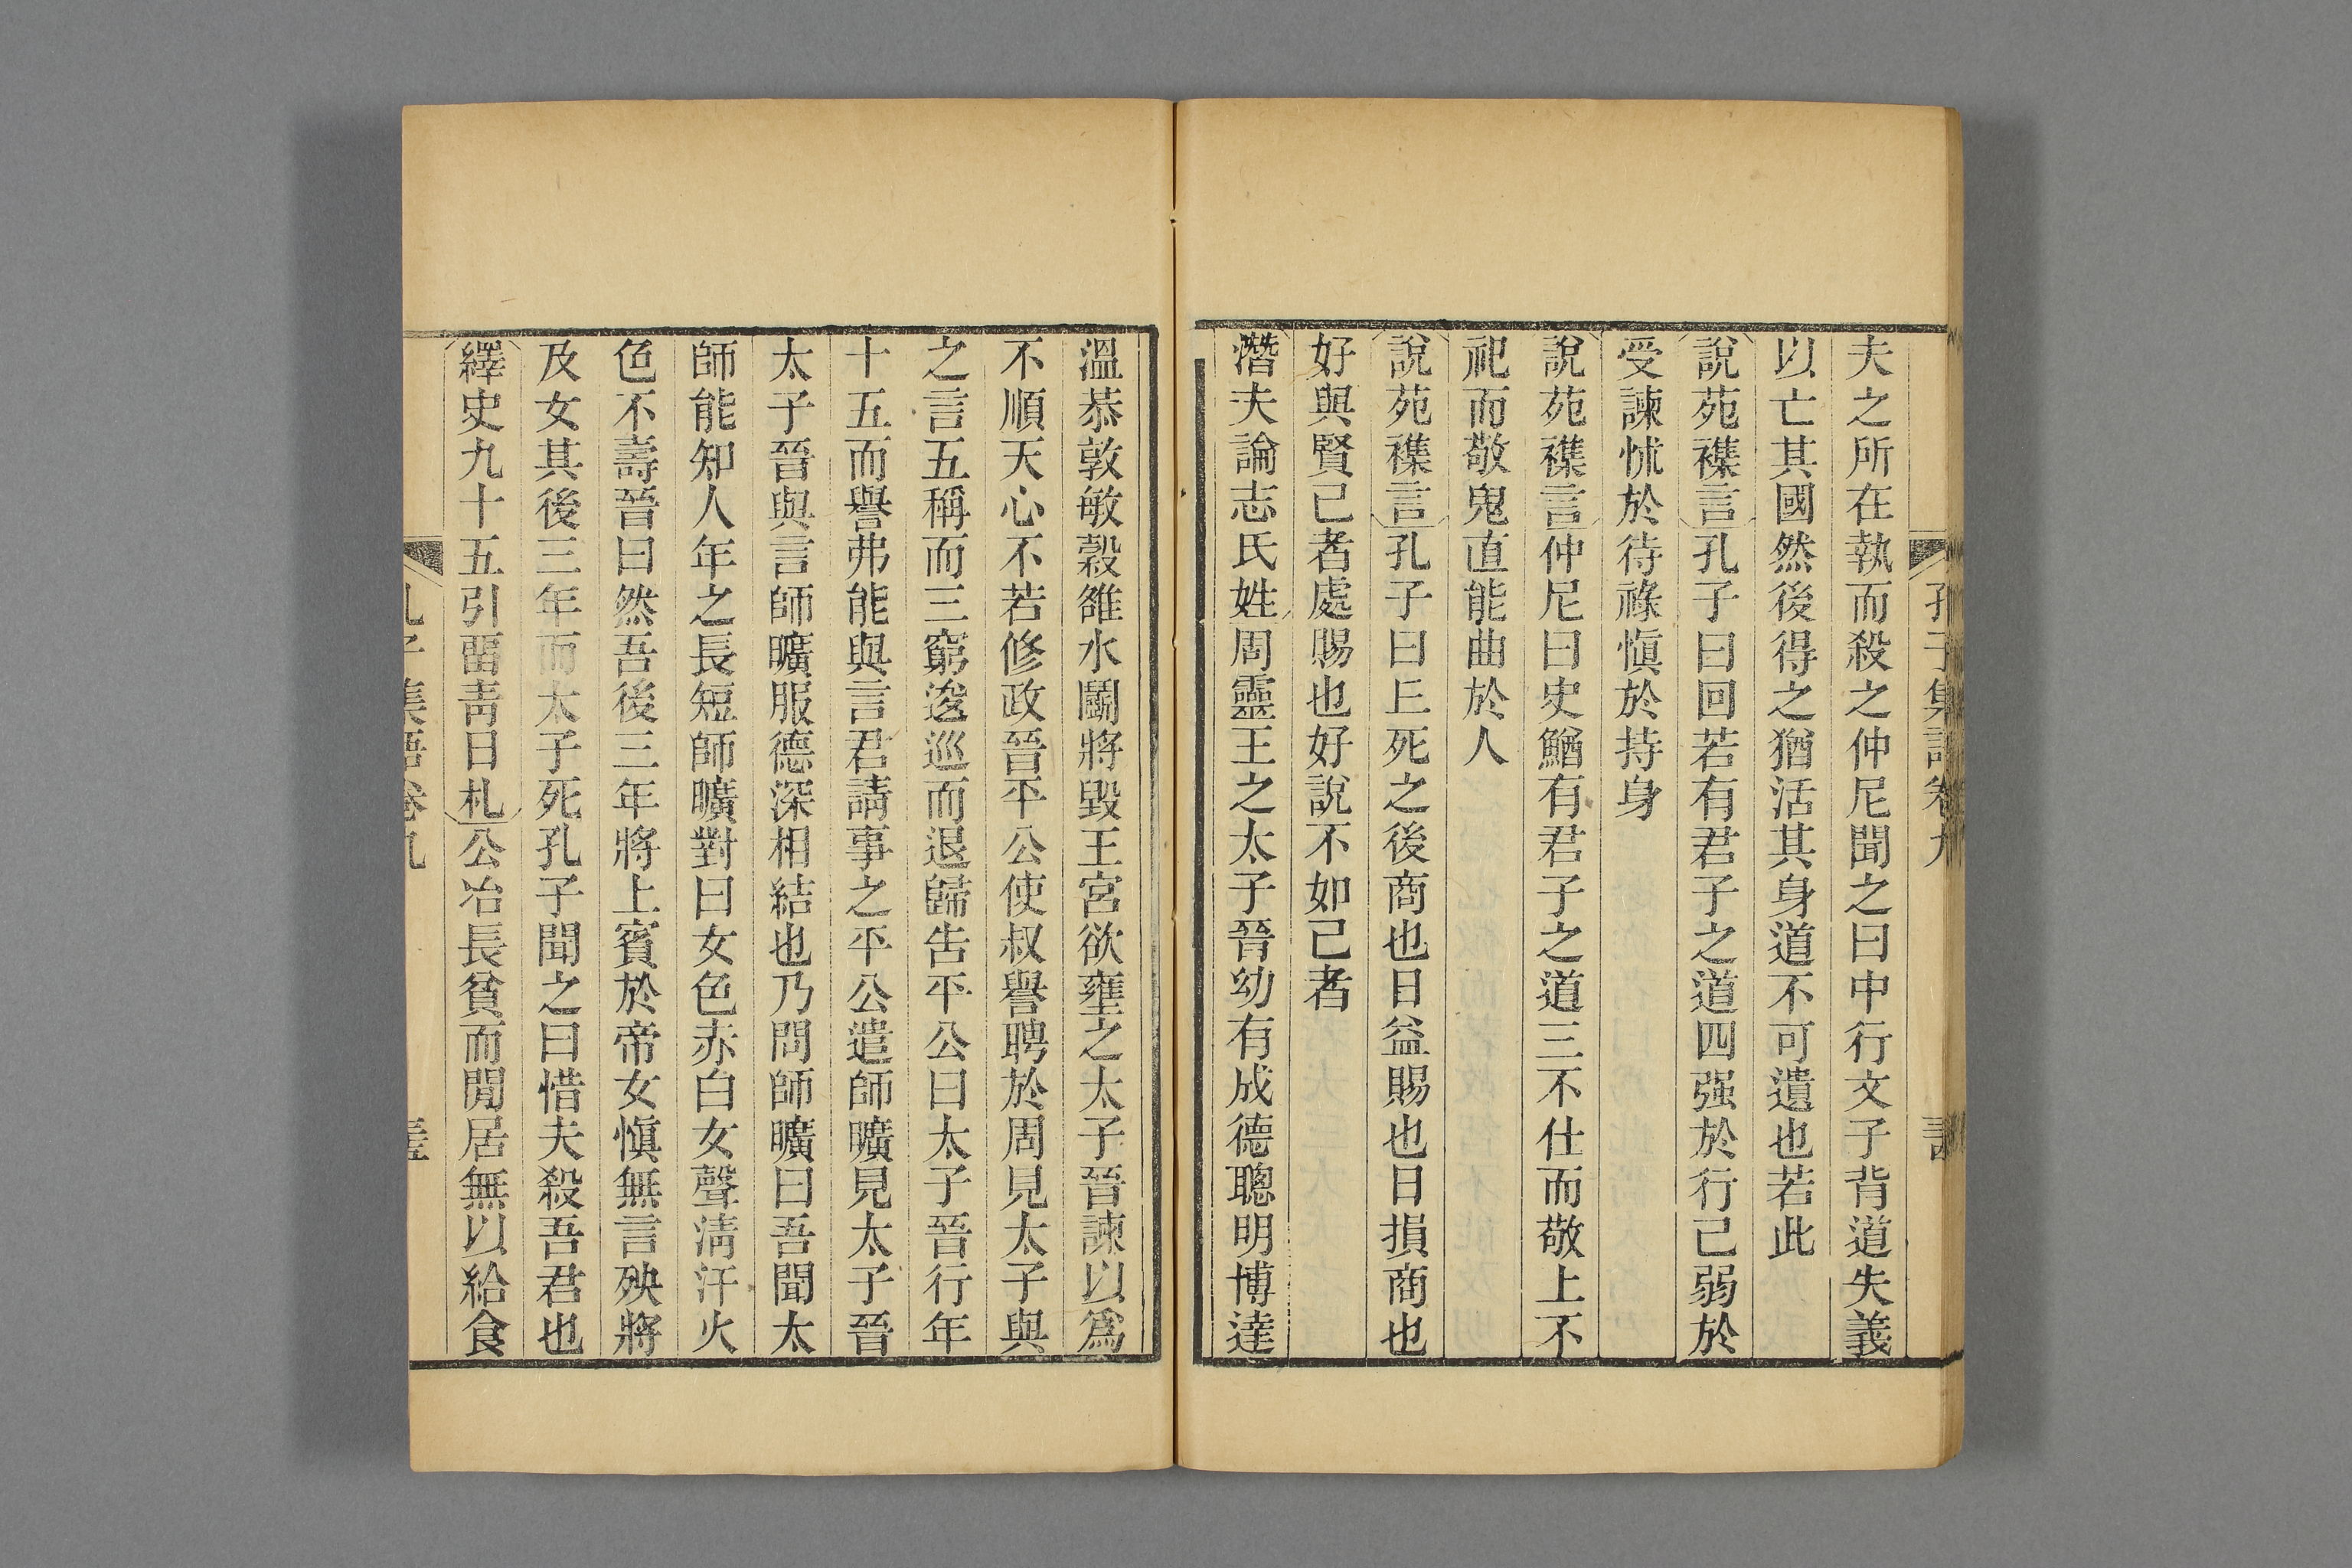 孔子集語卷九
夫之所在執而殺之仲尼聞之曰中行文子背道失義
以亡其國然後得之猶活其身道不可遺也若此
說苑襍言孔子曰回若有君子之道四强於行己弱於
受諫怵於待祿愼於持身
說苑襍言仲尼曰史鰌有君子之道三不仕而敬上不
祀而敬鬼直能曲於人
說苑襍言孔子曰丘死之後商也日益賜也日損商也
好與賢己者處賜也好說不如己者
潛夫論志氏姓周靈王之太子晉幼有成德聰明博達
溫恭敦敏穀雒水鬭將毀王宮欲壅之太子晉諫以爲
不順天心不若修政晉平公使叔譽聘於周見太子與
之言五稱而三窮逡巡而退歸告平公曰太子晉行年
十五而譽弗能與言君請事之平公遣師曠見太子晉
太子晉與言師曠服德深相結也乃問師曠曰吾聞太
師能知人年之長短師曠對曰女色赤白女聲淸汗火
色不壽晉曰然吾後三年將上賓於帝女愼無言殃將
及女其後三年而太子死孔子聞之曰惜夫殺吾君也
繹史九十五引畱靑日札公冶長貧而閒居無以給食
孔子集語卷九